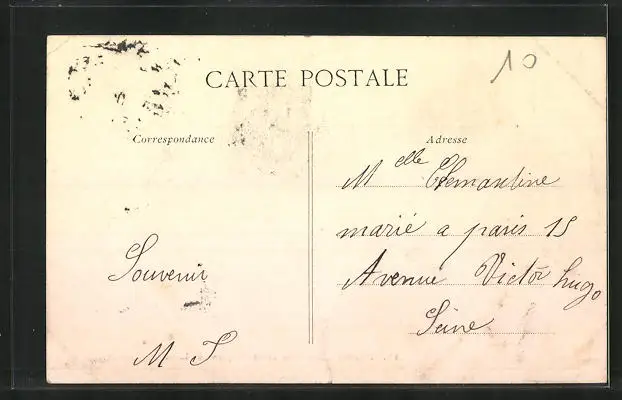 10
CARTE POSTALE
Correspondance
Adresse
Souvenir
M J
Melle Clemantine
marié a paris 15
Avenue Victor hugo
Seine